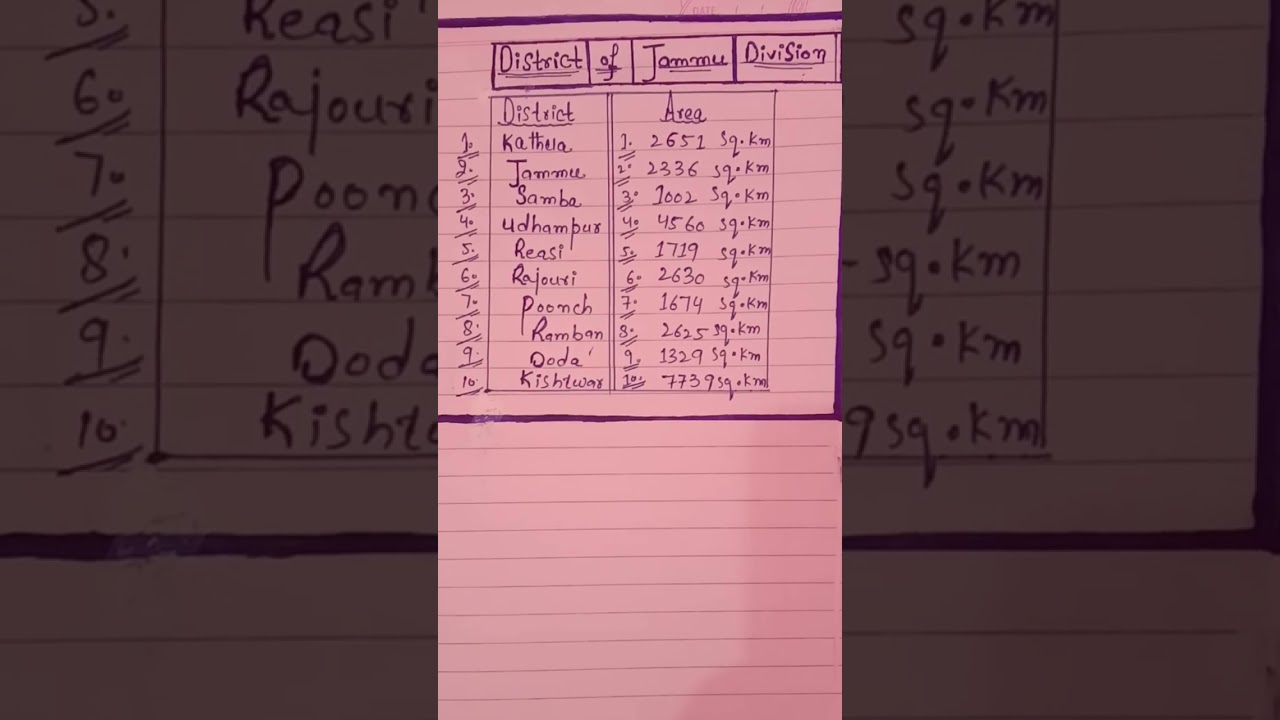 DATE
District of Jammu Division
District Area
1. Kathua 1. 2651 Sq.Km
2. Jammu 2. 2336 Sq.Km
3. Samba 3. 1002 Sq.Km
4. Udhampur 4. 4560 Sq.Km
5. Reasi 5. 1719 Sq.Km
6. Rajouri 6. 2630 Sq.Km
7. Poonch 7. 1674 Sq.Km
8. Ramban 8. 2625 Sq.Km
9. Doda 9. 1329 Sq.Km
10. Kishtwar 10. 7739 Sq.Km